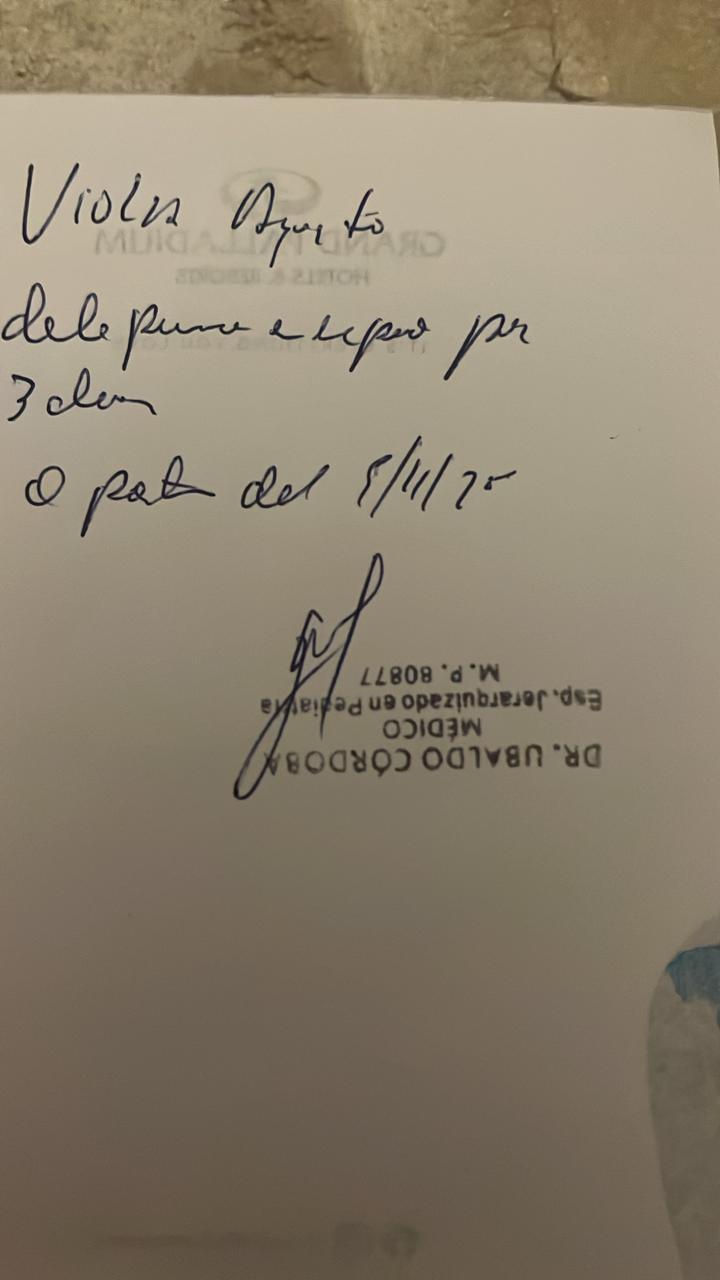 Viola Agusto
debe permanecer en reposo por
3 dias
a partir del 5/11/25
M.P. 80877
Esp. Jerarquizado en Pediatría
MÉDICO
DR. UBALDO CÓRDOBA
GRAND PALLADIUM
HOTELS & RESORTS